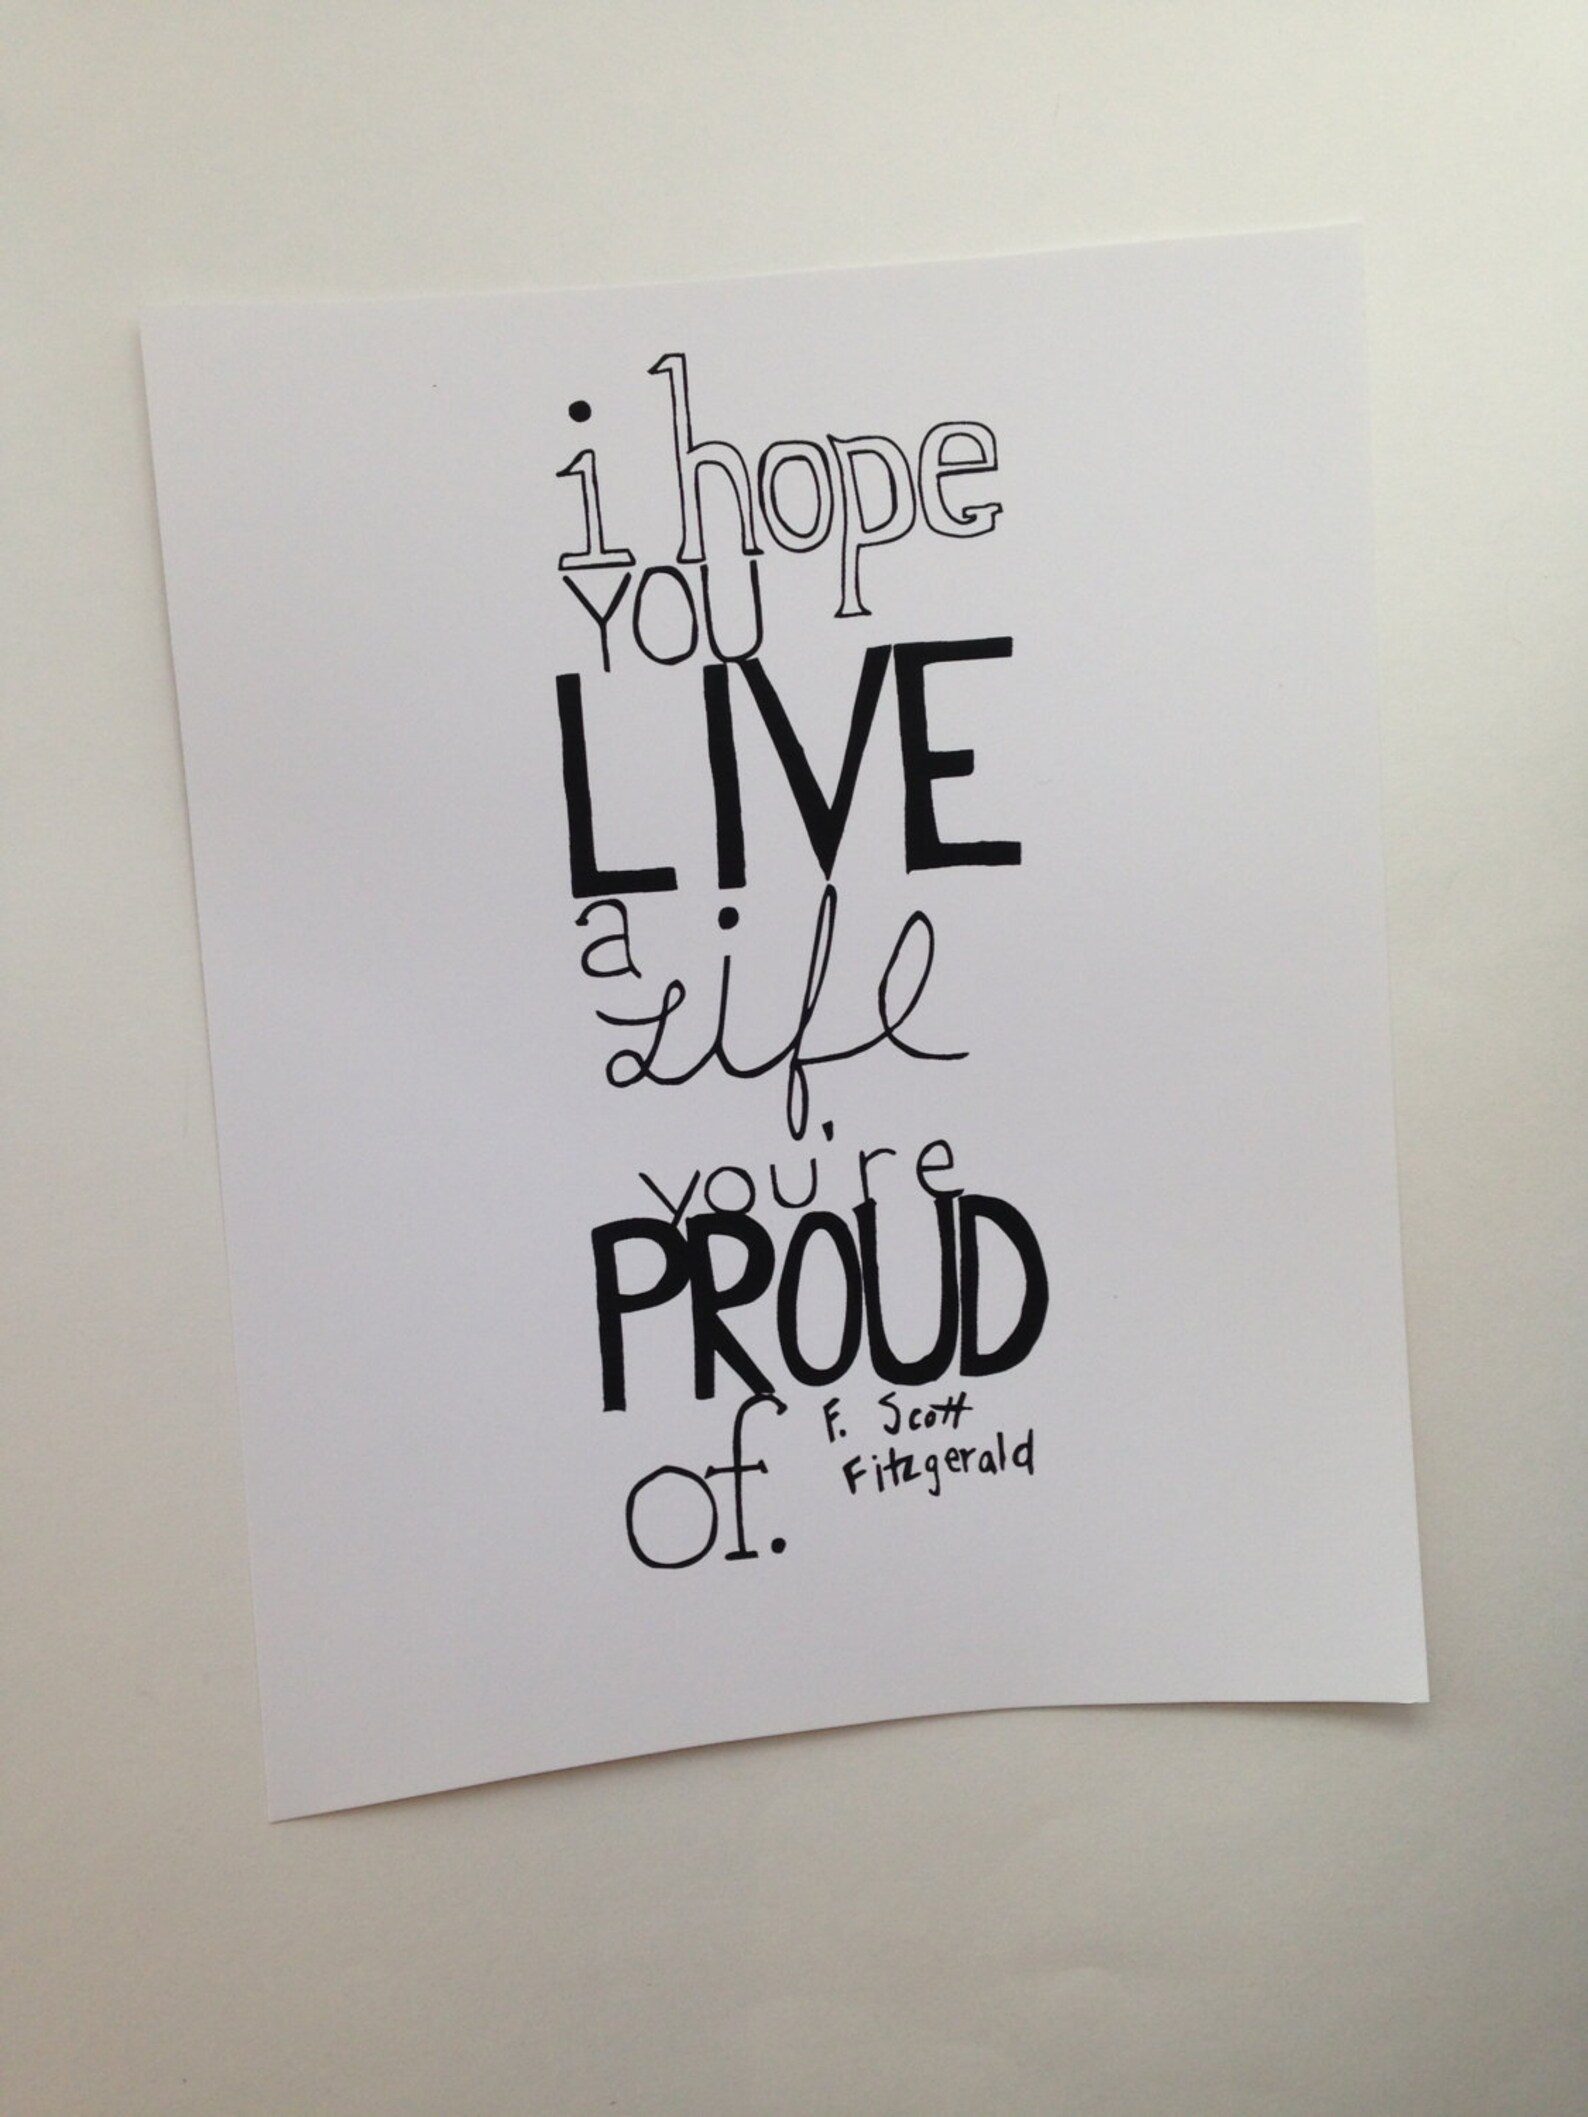 i hope
YOU
LIVE
a
Life
you're
PROUD
of.
F. Scott
Fitzgerald